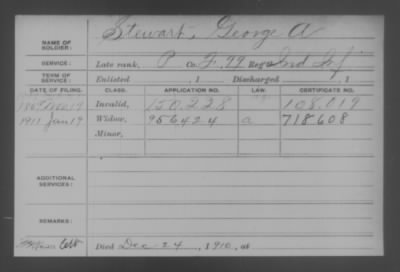 Stewart, George A
NAME OF SOLDIER:
SERVICE: Late rank, P Co. F, 99 Reg't Ind Inf
TERM OF SERVICE: Enlisted , 1 Discharged , 1
DATE OF FILING. CLASS. APPLICATION NO. LAW. CERTIFICATE NO.
1869 Invalid, 150.228 108.019
1911 Jan 19 Widow, 956424 a 718608
Minor,
ADDITIONAL SERVICES:
REMARKS:
Died Dec-24, 1910, at